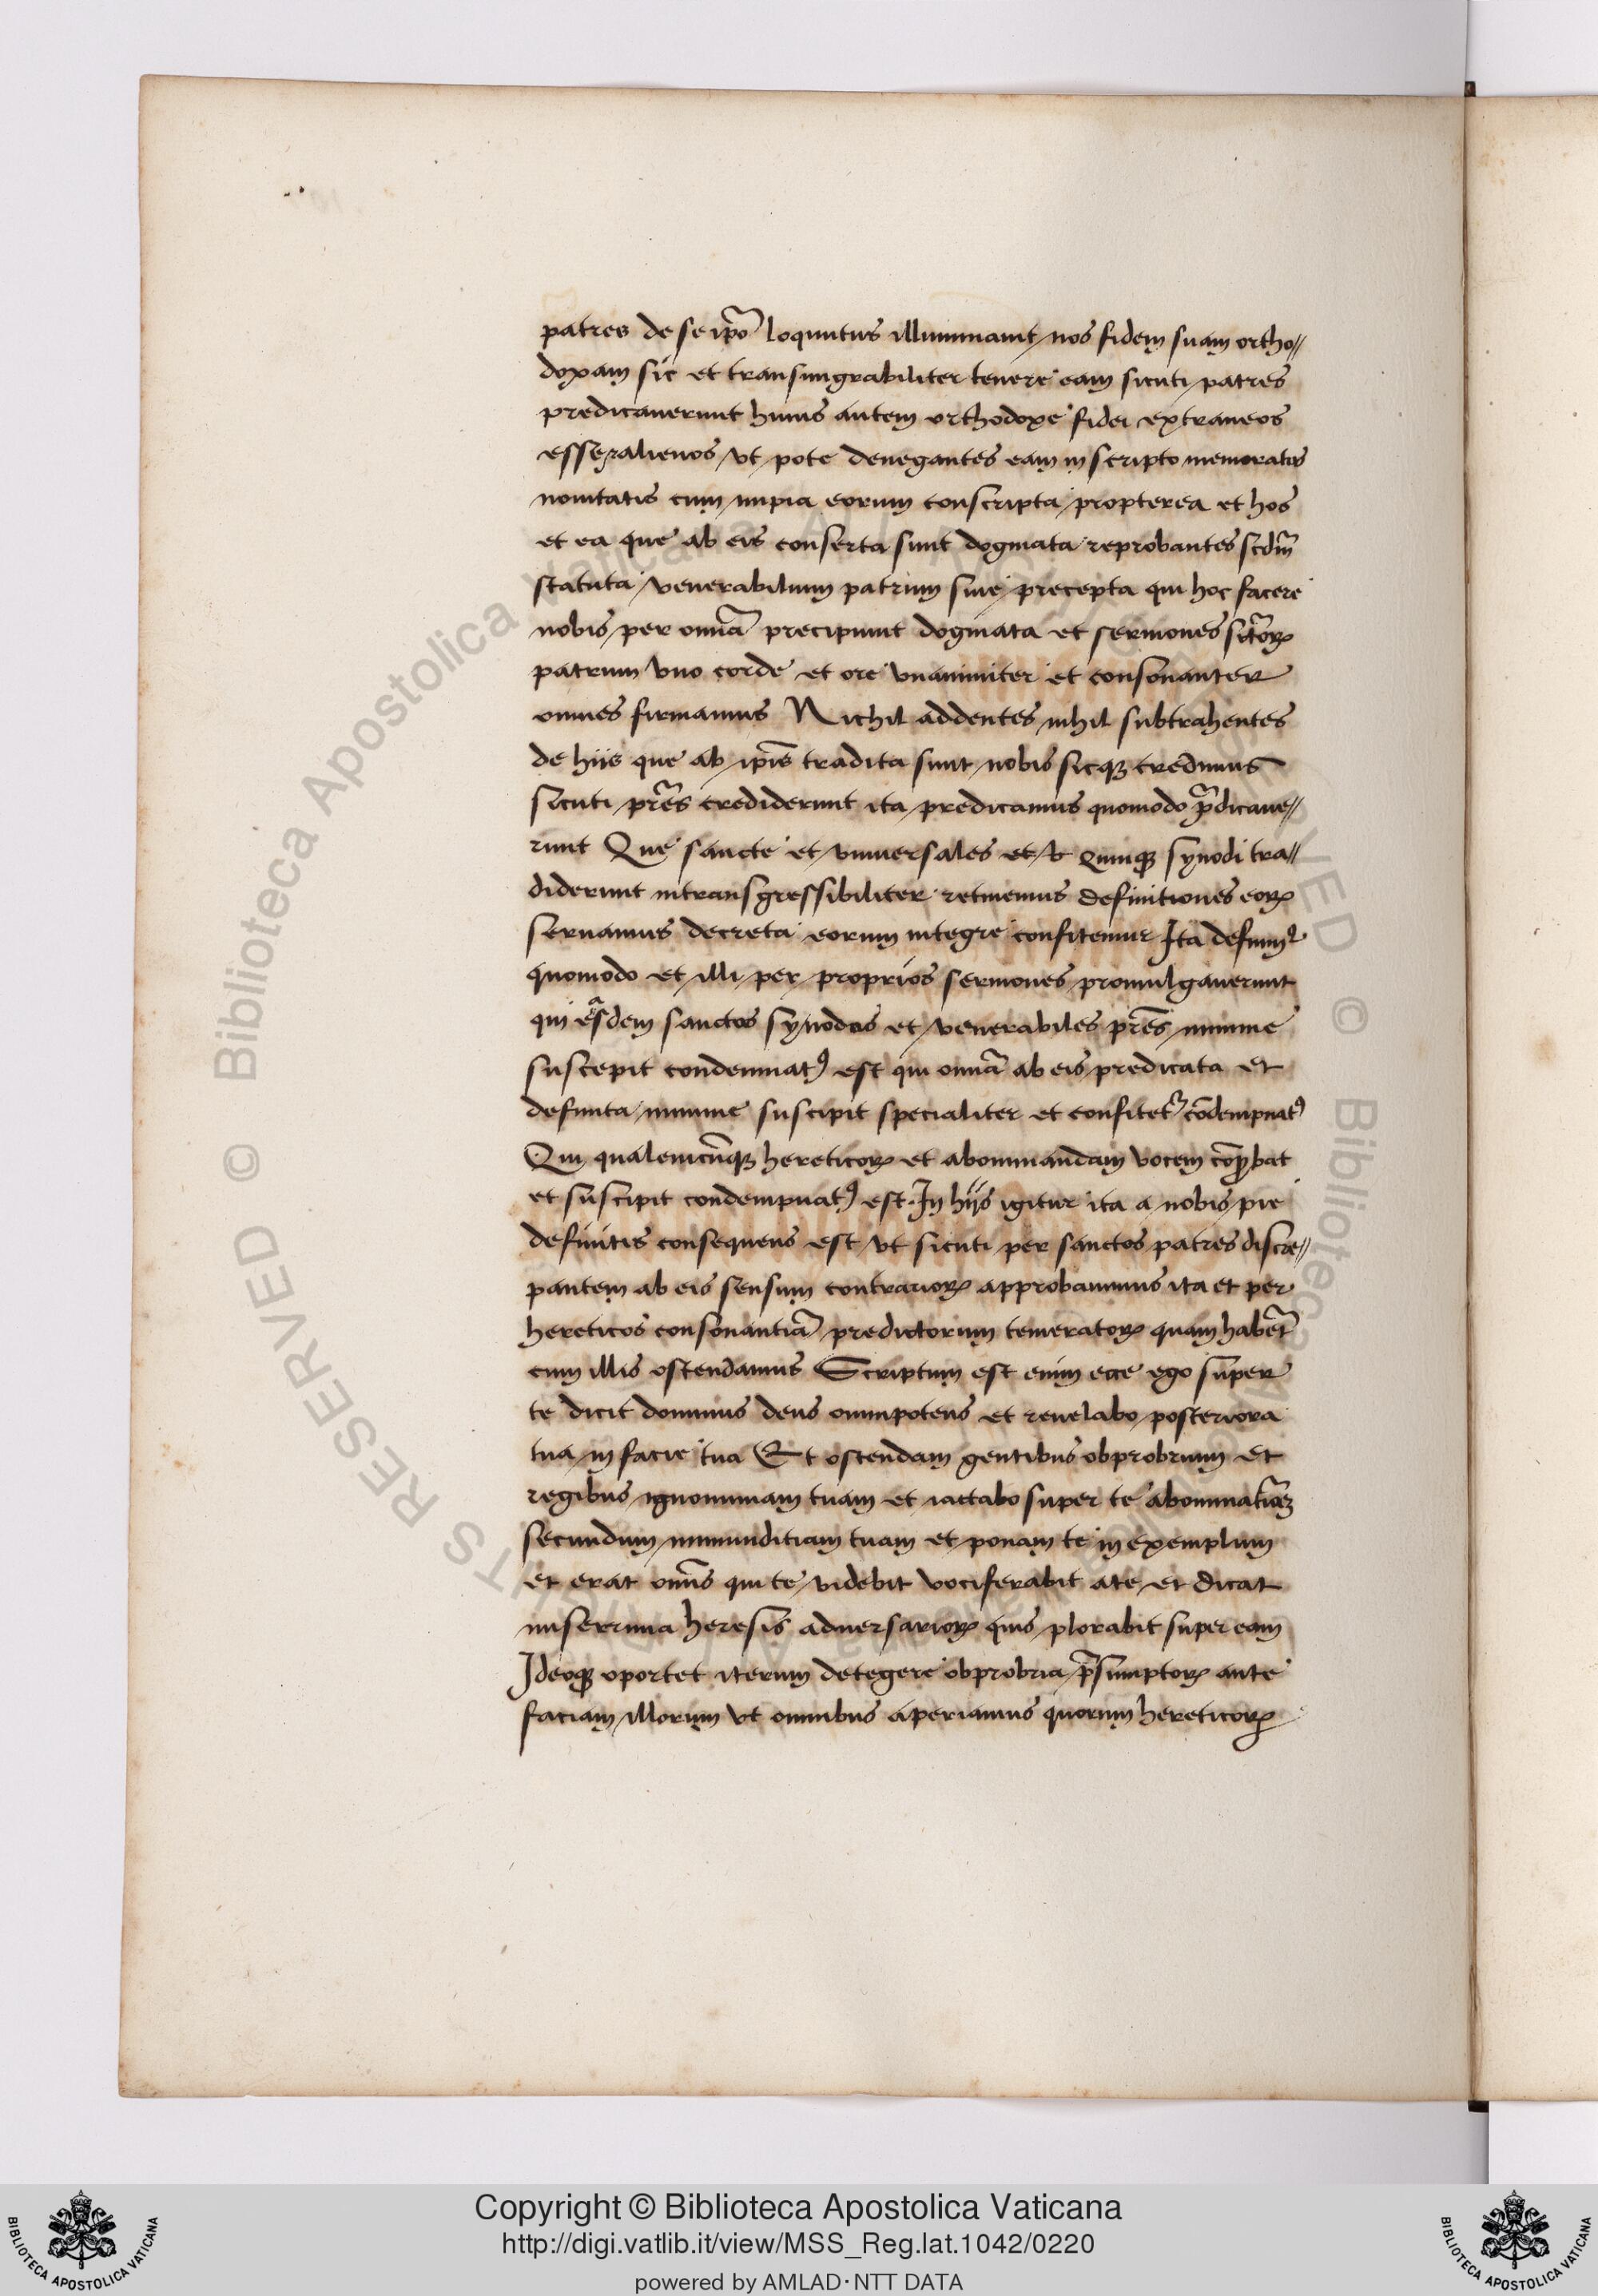 patres de se ip̄o loquutus illuminauit nos fidem suam ortho//
doxam sic et transmigrabiliter tenere eam sicuti patres
predicauerunt huius autem orthodoxe fidei extraneos
esse alienos vt pote denegantes eam in scripto memoratos
nouitatis cum impia eorum conscripta propterea et hos
et ea que ab eis conserta sunt dogmata reprobantes scdm̄
statuta venerabilium patrum siue precepta qui hoc facere
nobis per omnā precipiunt dogmata et sermones sctōꝝ
patrum vno corde et ore vnanimiter et consonanter
omnes firmamus Nichil addentes nihil subtrahentes
de hijs que ab ip̄is tradita sunt nobis sicqꝫ credimus
sicuti pr̄es crediderunt ita predicamus quomodo p̄dicaue//
runt Que sancte et vniuersales et v quinqꝫ synodi tra//
diderunt intransgressibiliter retinemus definitiones eoꝝ
seruamus decreta eorum integre confitemur Ita definimꝰ
quomodo et illi per proprios sermones promulgauerunt
qui easdem sanctos synodos et venerabiles pr̄es minime
suscepit condemnatꝰ est qui omnā ab eis predicata et
definita minime suscipit specialiter et confitet᷑ cōdempnatꝰ
Qui qualemcūnqꝫ hereticoꝝ et abominandam vocem cōꝓbat
et suscipit condempnatꝰ est. In hijs igitur ita a nobis pie
definitis consequens est vt sicuti per sanctos patres discre//
pantem ab eis sensum contrarioꝝ approbauimus ita et per
hereticos consonantiā predictorum temeratoꝝ quam haben̄t
cum illis ostendamus Scriptum est enim ecce ego super
te dicit dominus deus omnipotens et reuelabo posteriora
tua in facie tua Et ostendam gentibus obprobrium et
regibus ignominiam tuam et iactabo super te abominatiōeꝫ
secundum immunditiam tuam et ponam te in exemplum
et erat omn̄is qui te videbit vociferabit a te et dicat
miserrima heresis aduersarioꝝ quis plorabit super eam
Ideoqꝫ oportet iterum detegere obprobria p̄sumptoꝝ ante
faciam illorum vt omnibus aperiamus quorum hereticoꝝ
Copyright © Biblioteca Apostolica Vaticana
http://digi.vatlib.it/view/MSS_Reg.lat.1042/0220
powered by AMLAD·NTT DATA